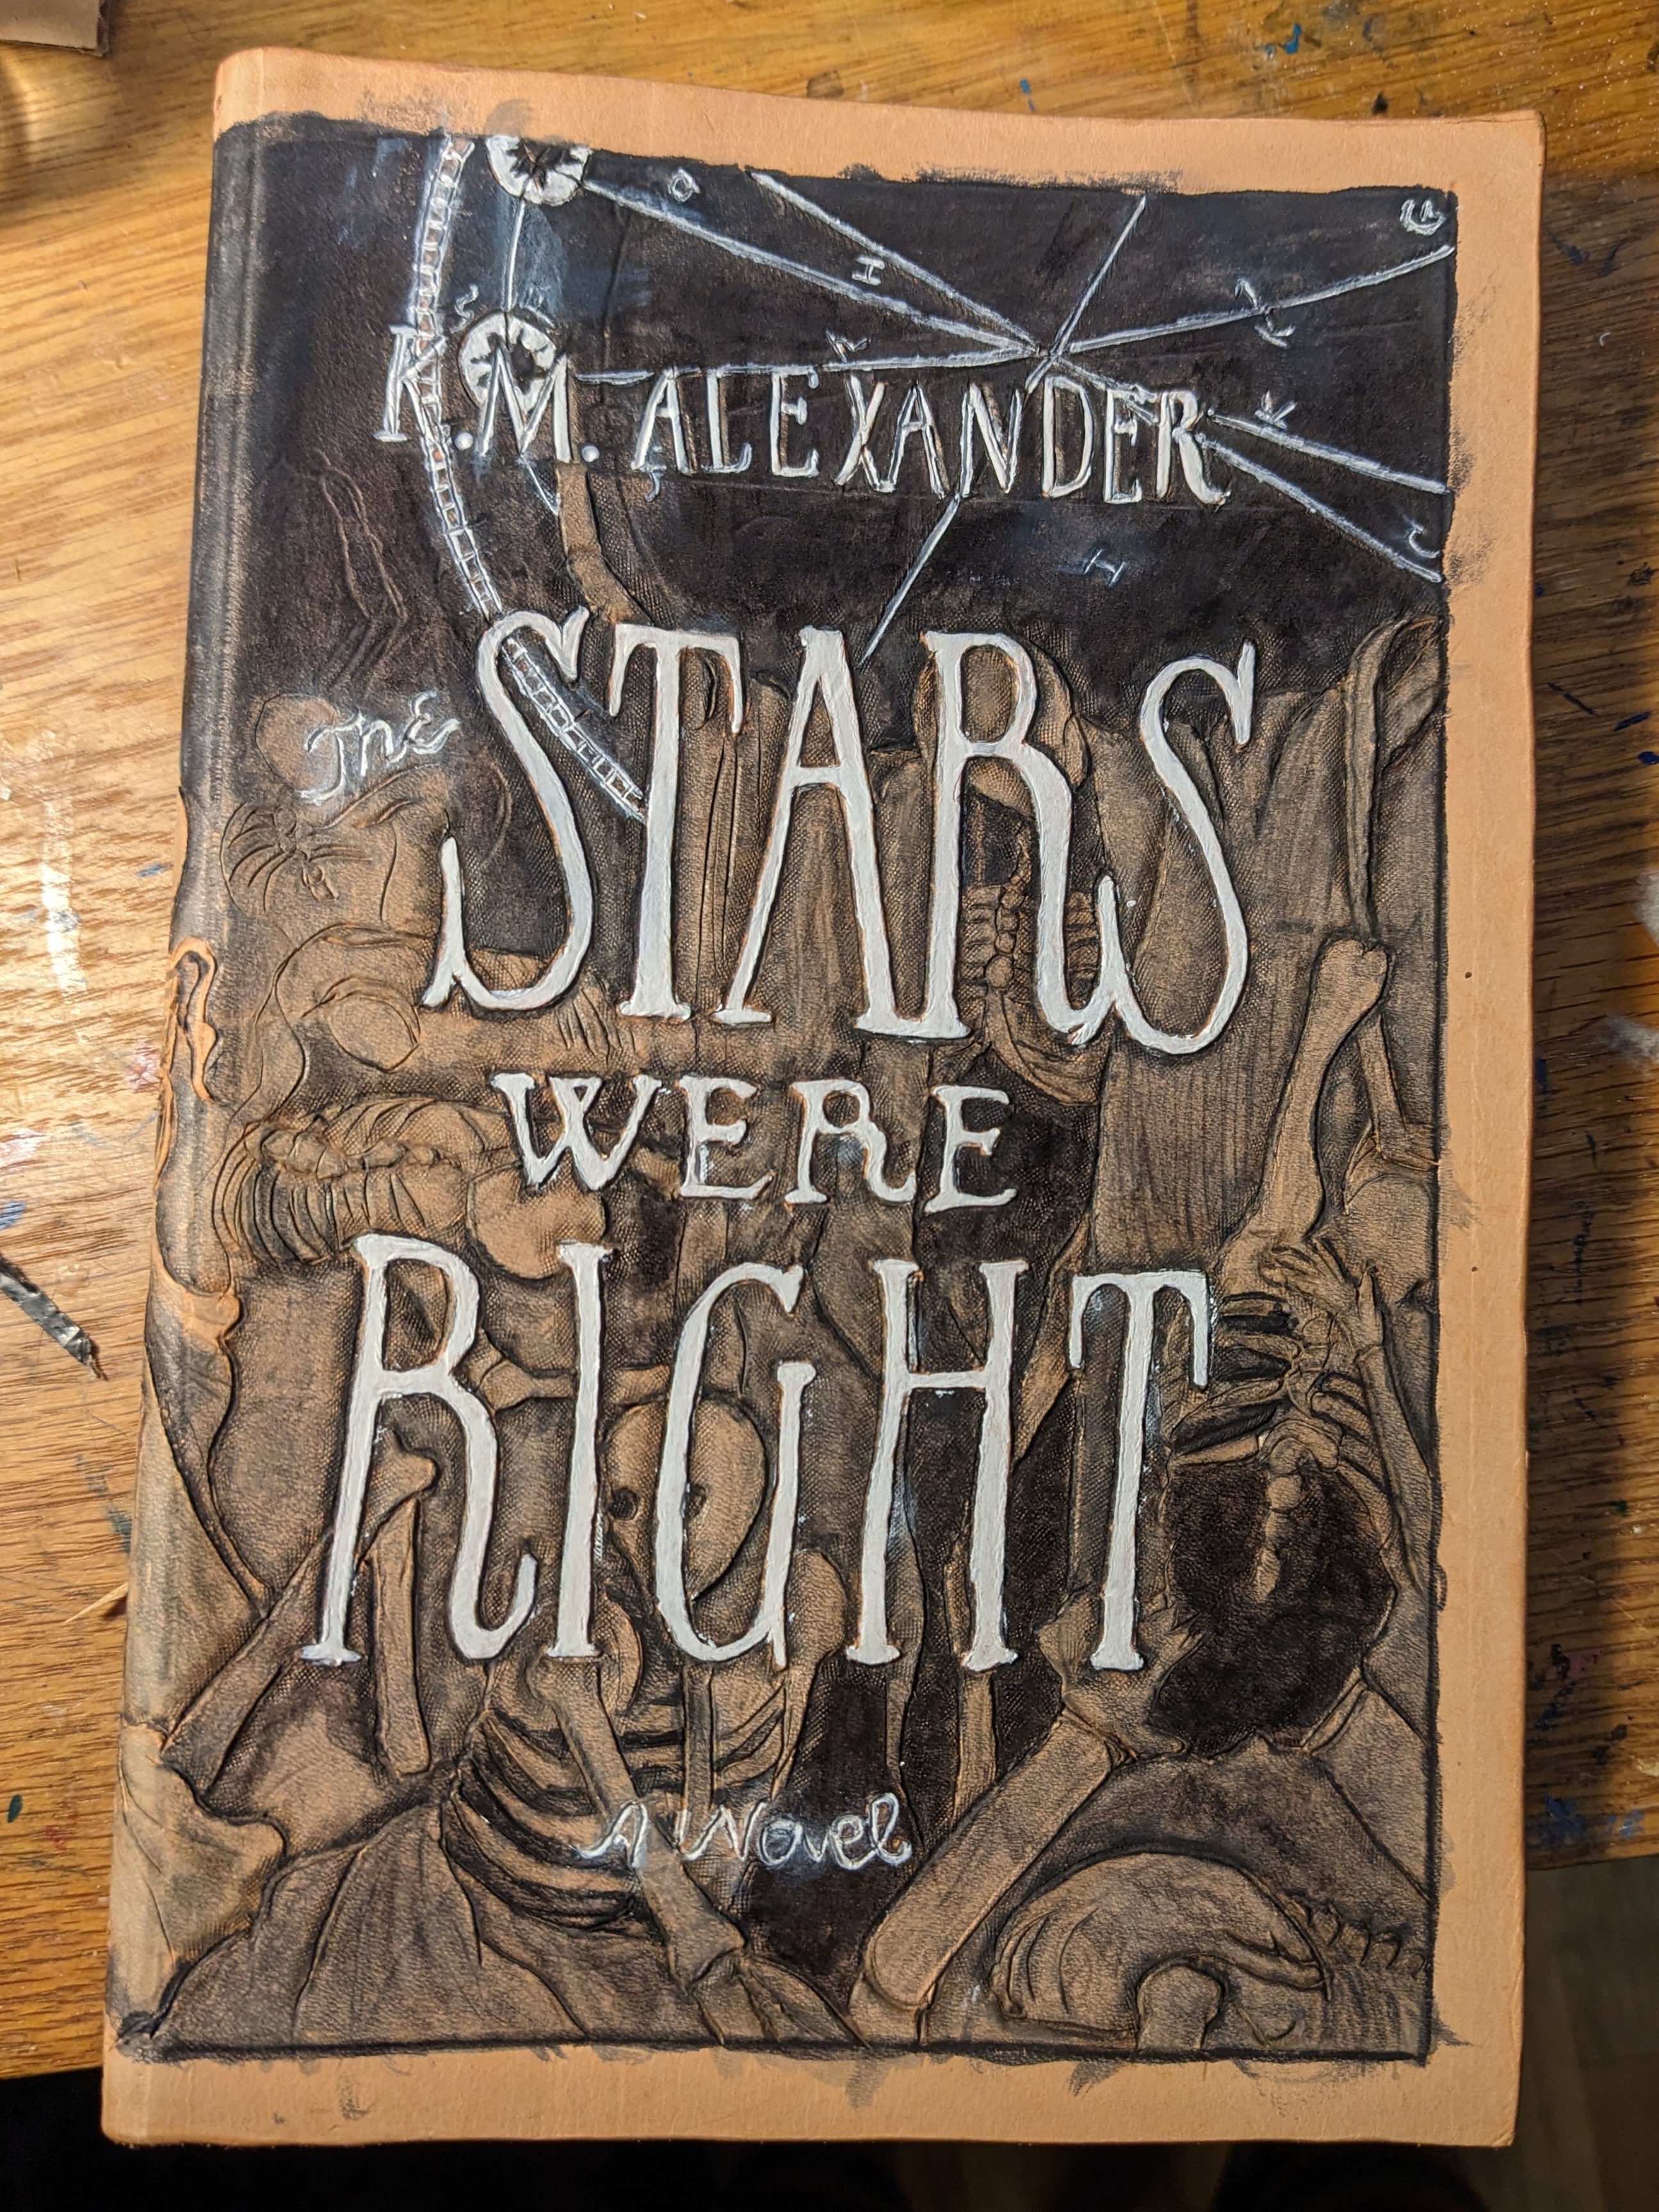 K.M. ALEXANDER
The
STARS
WERE
RIGHT
A Novel